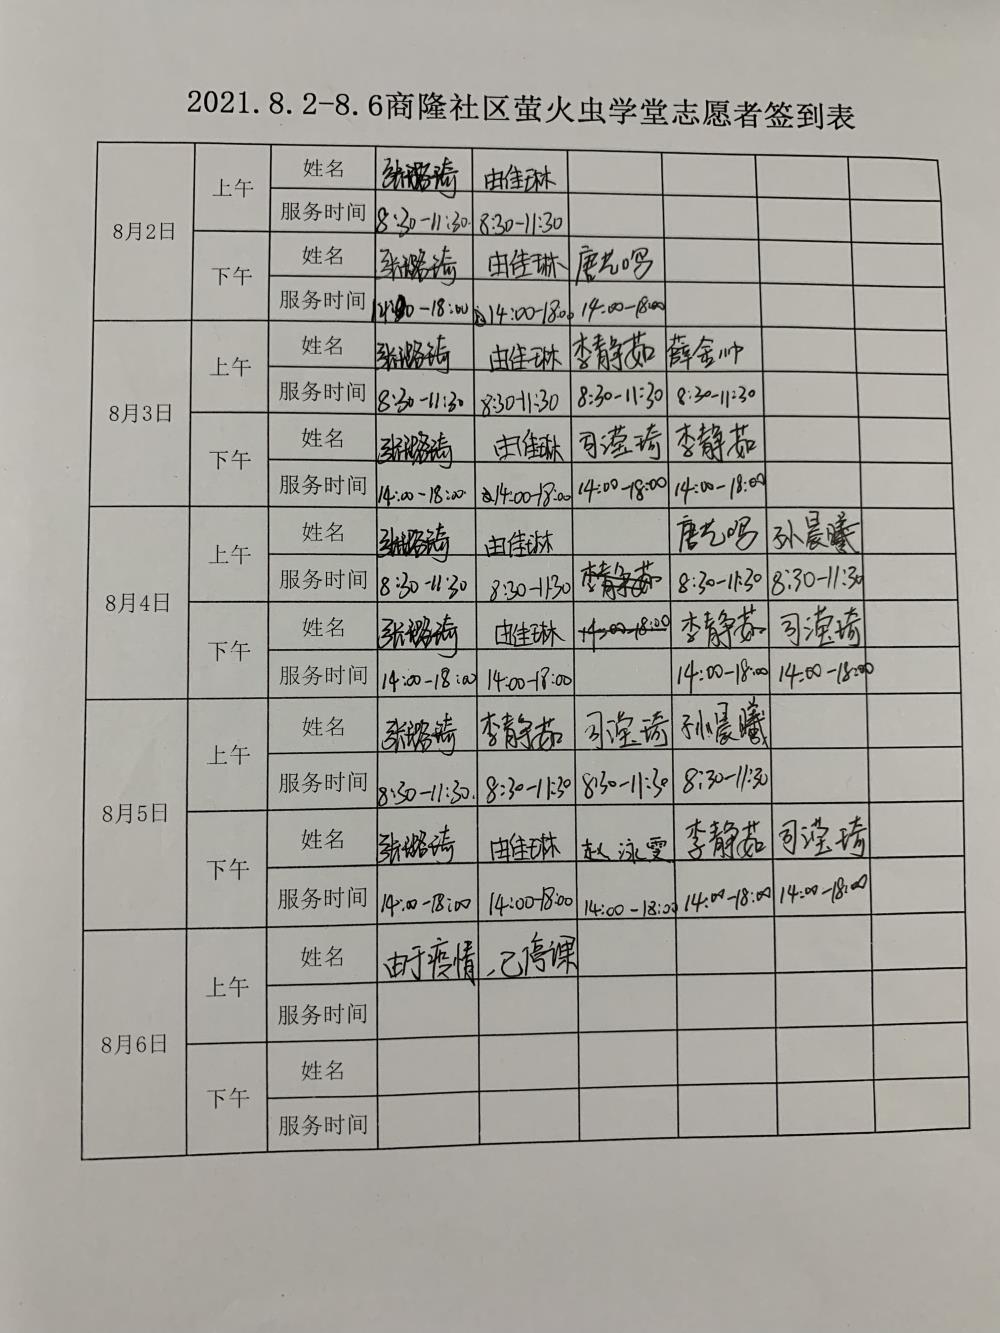 2021.8.2-8.6商隆社区萤火虫学堂志愿者签到表
8月2日
上午
姓名 张璐琦 由佳琳
服务时间 8:30-11:30. 8:30-11:30
下午
姓名 张璐琦 由佳琳 唐艺鸣
服务时间 -18:00 14:00-18:00 14:00-18:00
8月3日
上午
姓名 张璐琦 由佳琳 李静茹 薛金帅
服务时间 8:30-11:30 8:30-11:30 8:30-11:30 8:30-11:30
下午
姓名 张璐琦 由佳琳 司滢琦 李静茹
服务时间 14:00-18:00 14:00-18:00 14:00-18:00 14:00-18:00
8月4日
上午
姓名 张璐琦 由佳琳 唐艺鸣 孙晨曦
服务时间 8:30-11:30 8:30-11:30 李静茹 8:30-11:30 8:30-11:30
下午
姓名 张璐琦 由佳琳 14:00-18:00 李静茹 司滢琦
服务时间 14:00-18:00 14:00-18:00 14:00-18:00 14:00-18:00
8月5日
上午
姓名 张璐琦 李静茹 司滢琦 孙晨曦
服务时间 8:30-11:30. 8:30-11:30 8:30-11:30 8:30-11:30
下午
姓名 张璐琦 由佳琳 赵泳雯 李静茹 司滢琦
服务时间 14:00-18:00 14:00-18:00 14:00-18:00 14:00-18:00 14:00-18:00
8月6日
上午
姓名 由于疫情、已停课
服务时间
下午
姓名
服务时间